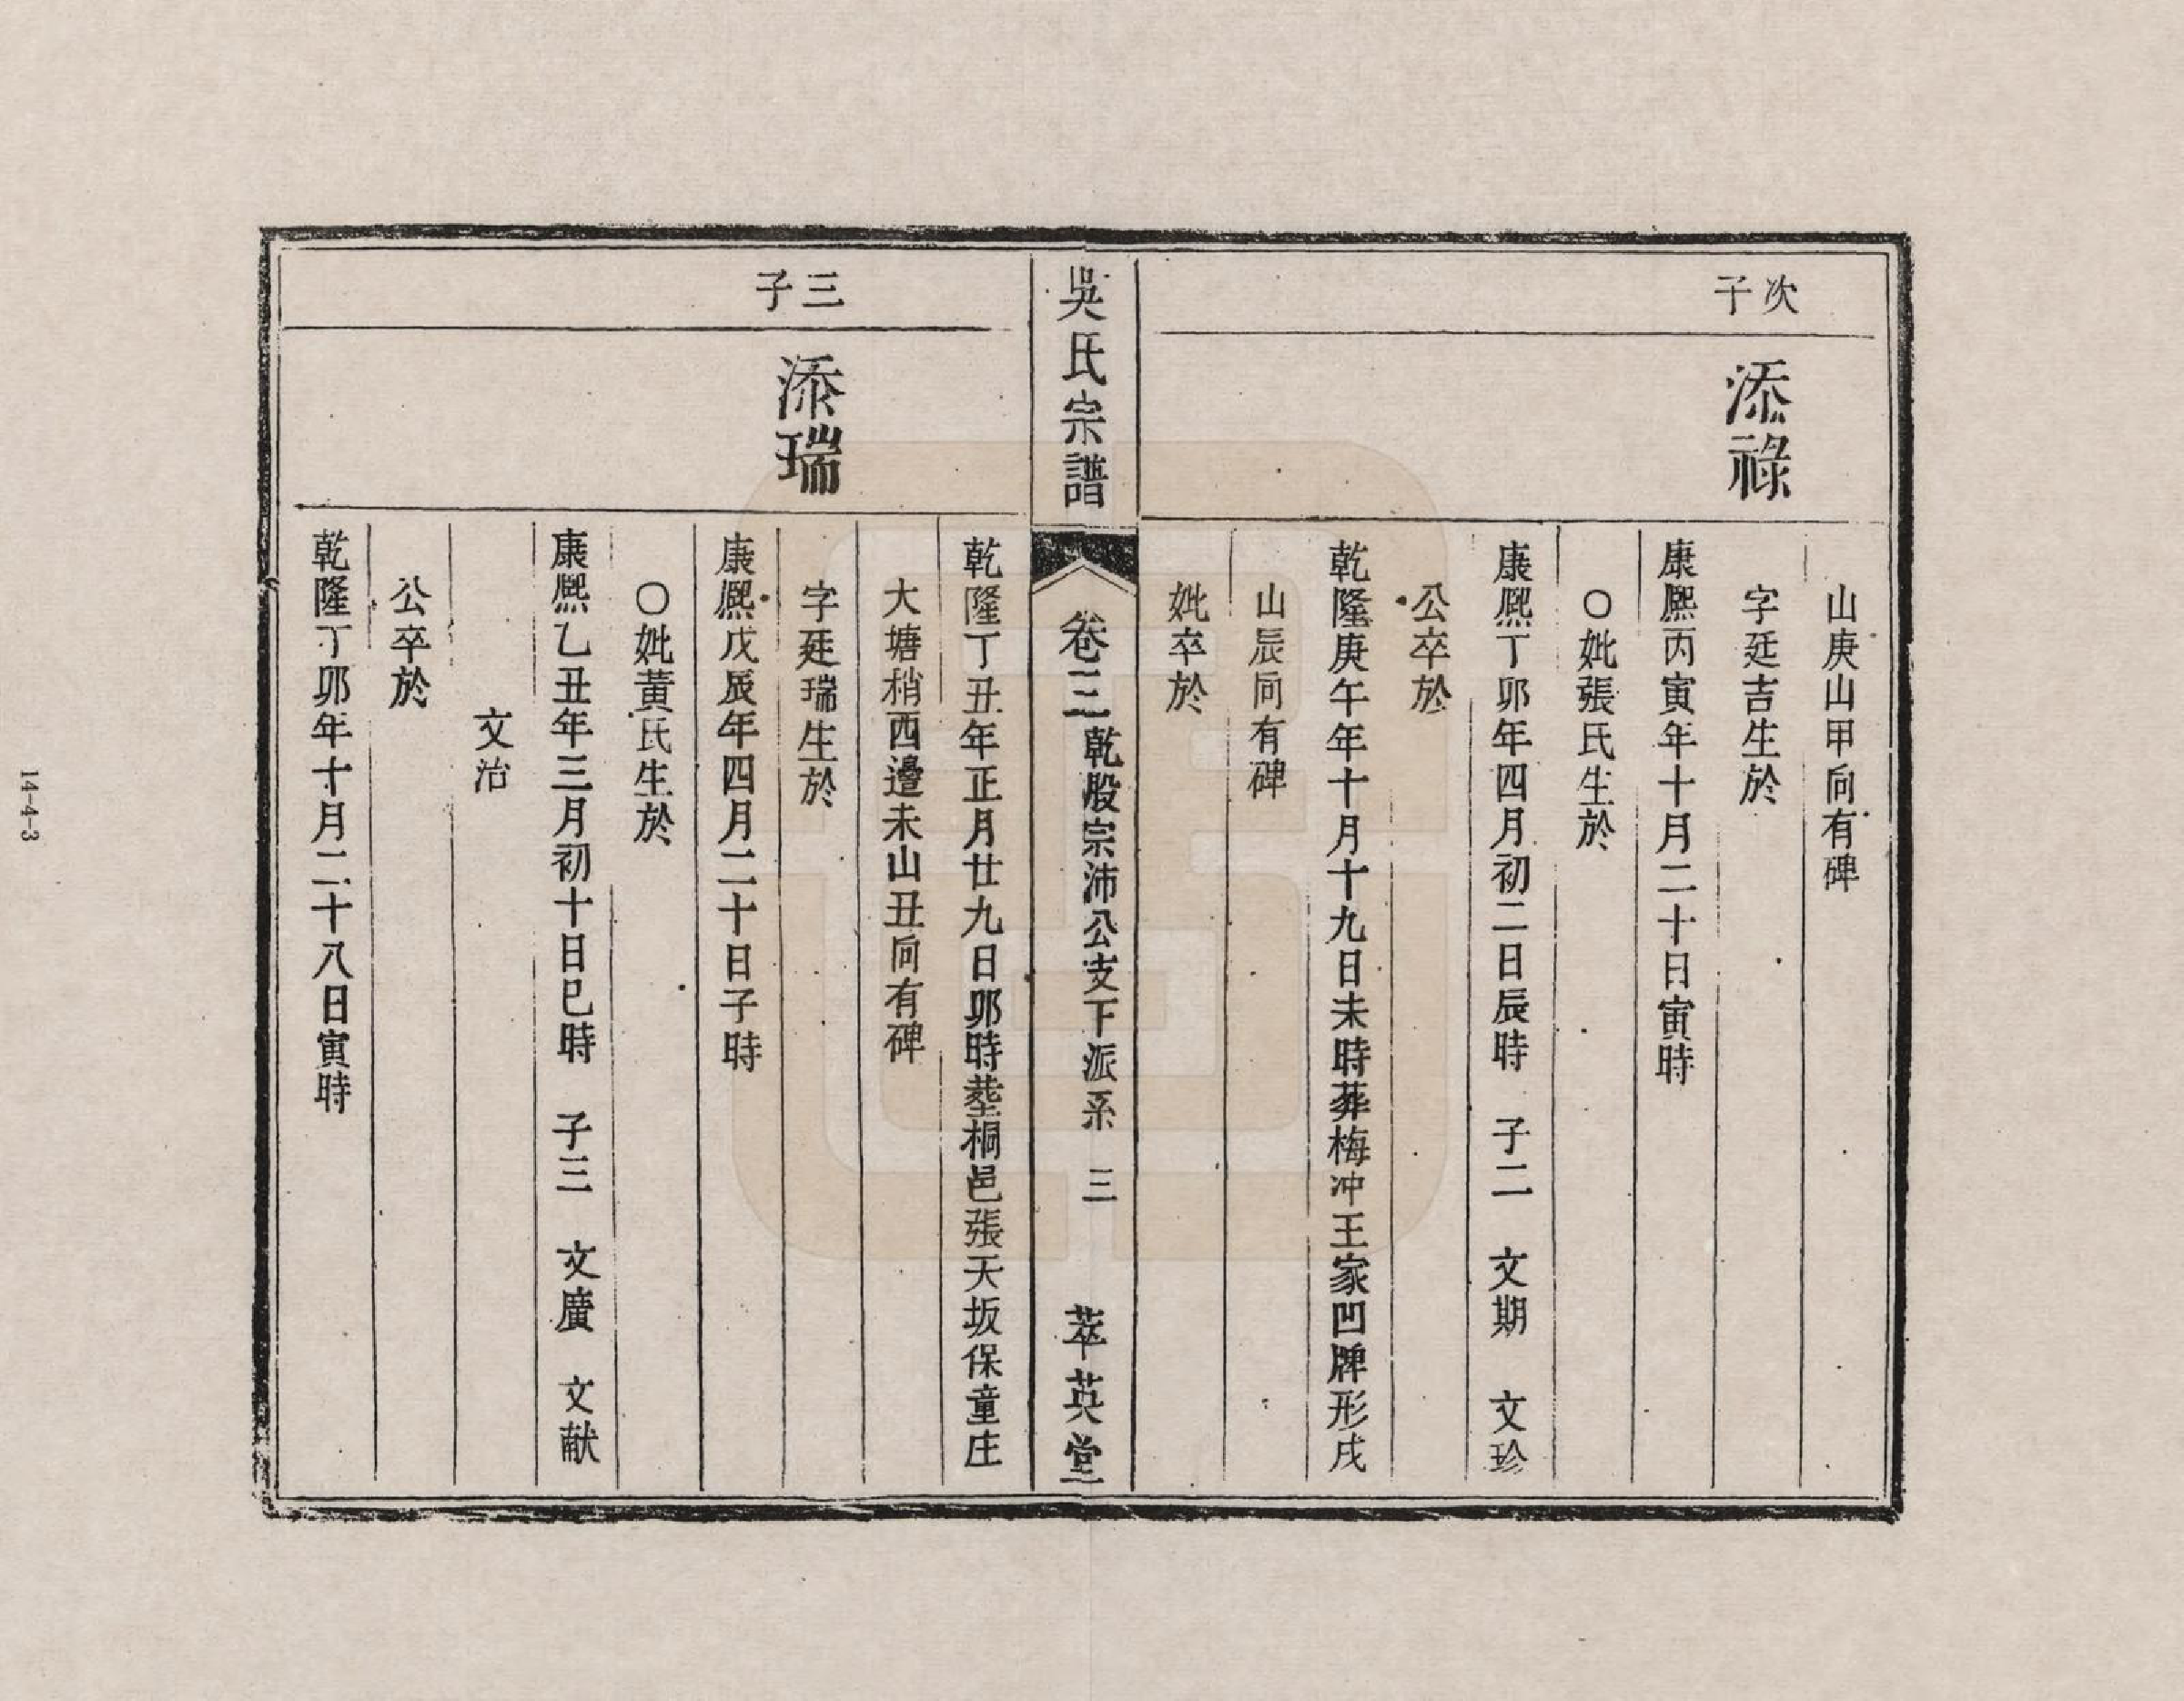 次子
添祿
山庚山甲向有碑
字廷吉生於
康熙丙寅年十月二十日寅時
〇妣張氏生於
康熙丁卯年四月初二日辰時　子二　文期　文珍
公卒於
乾隆庚午年十月十九日未時葬梅冲王家凹牌形戌
山辰向有碑
妣卒於
吳氏宗譜
卷三 乾股宗沛公支下派系　三
萃英堂
乾隆丁丑年正月廿九日卯時塟桐邑張天坂保童庄
大塘稍西邉未山丑向有碑
三子
添瑞
字廷瑞生於
康熙戊辰年四月二十日子時
〇妣黃氏生於
康熙乙丑年三月初十日巳時　子三　文廣　文献
文治
公卒於
乾隆丁卯年十月二十八日寅時
14-4-3